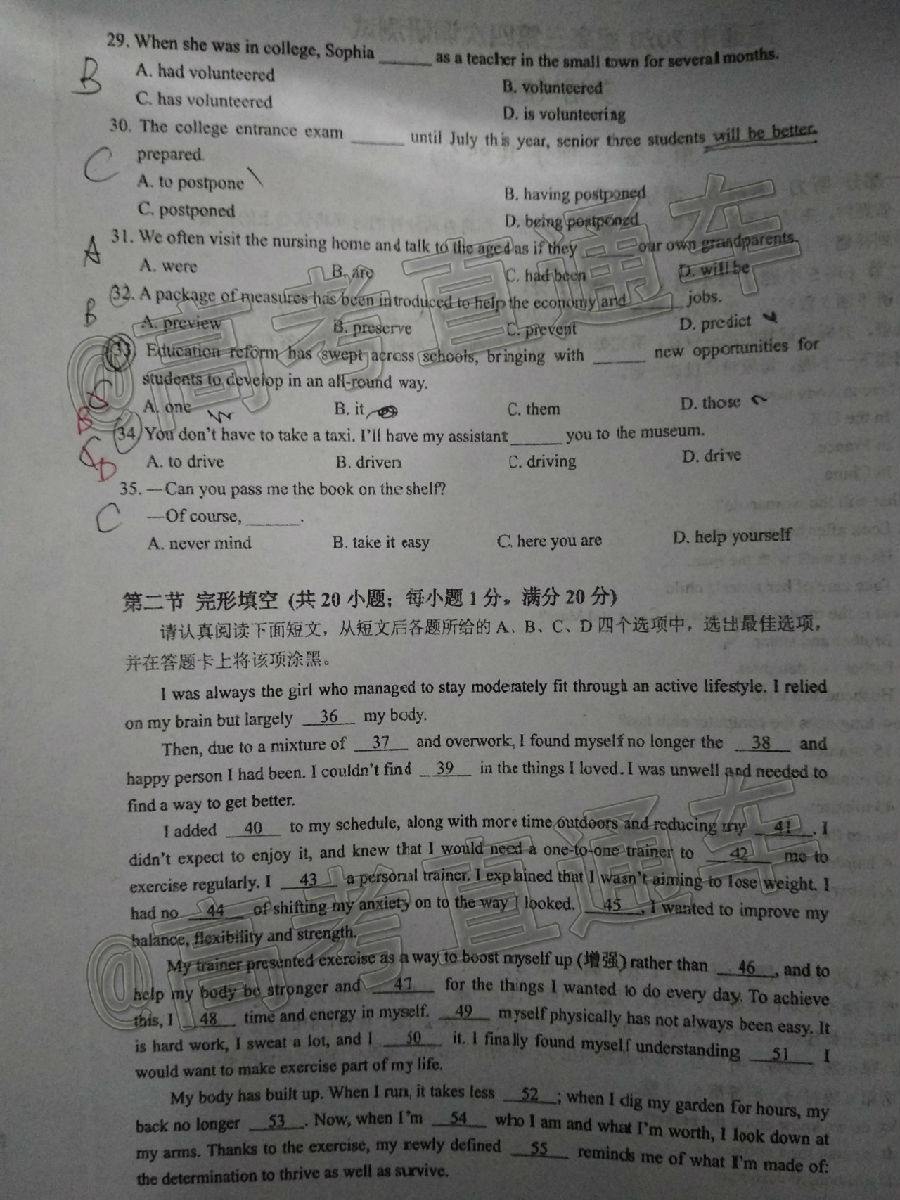 29. When she was in college, Sophia ______ as a teacher in the small town for several months.
B
A. had volunteered B. volunteered
C. has volunteered D. is volunteering
30. The college entrance exam ______ until July this year, senior three students will be better
prepared.
C
A. to postpone B. having postponed
C. postponed D. being postponed
31. We often visit the nursing home and talk to the aged as if they ______ our own grandparents.
A
A. were B. are C. had been D. will be
32. A package of measures has been introduced to help the economy and ______ jobs.
B
A. preview B. preserve C. prevent D. predict
33. Education reform has swept across schools, bringing with ______ new opportunities for
students to develop in an all-round way.
C B
A. one B. it C. them D. those
34. You don't have to take a taxi. I'll have my assistant ______ you to the museum.
C D
A. to drive B. driven C. driving D. drive
35. —Can you pass me the book on the shelf?
—Of course, ______.
C
A. never mind B. take it easy C. here you are D. help yourself
第二节 完形填空 (共 20 小题；每小题 1 分，满分 20 分)
请认真阅读下面短文，从短文后各题所给的 A、B、C、D 四个选项中，选出最佳选项，
并在答题卡上将该项涂黑。
I was always the girl who managed to stay moderately fit through an active lifestyle. I relied
on my brain but largely 36 my body.
Then, due to a mixture of 37 and overwork, I found myself no longer the 38 and
happy person I had been. I couldn't find 39 in the things I loved. I was unwell and needed to
find a way to get better.
I added 40 to my schedule, along with more time outdoors and reducing my 41. I
didn't expect to enjoy it, and knew that I would need a one-to-one trainer to 42 me to
exercise regularly. I 43 a personal trainer. I explained that I wasn't aiming to lose weight. I
had no 44 of shifting my anxiety on to the way I looked. 45, I wanted to improve my
balance, flexibility and strength.
My trainer presented exercise as a way to boost myself up (增强) rather than 46, and to
help my body be stronger and 47 for the things I wanted to do every day. To achieve
this, I 48 time and energy in myself. 49 myself physically has not always been easy. It
is hard work, I sweat a lot, and I 50 it. I finally found myself understanding 51 I
would want to make exercise part of my life.
My body has built up. When I run, it takes less 52; when I dig my garden for hours, my
back no longer 53. Now, when I'm 54 who I am and what I'm worth, I look down at
my arms. Thanks to the exercise, my newly defined 55 reminds me of what I'm made of:
the determination to thrive as well as survive.
@高考直通车
@高考直通车